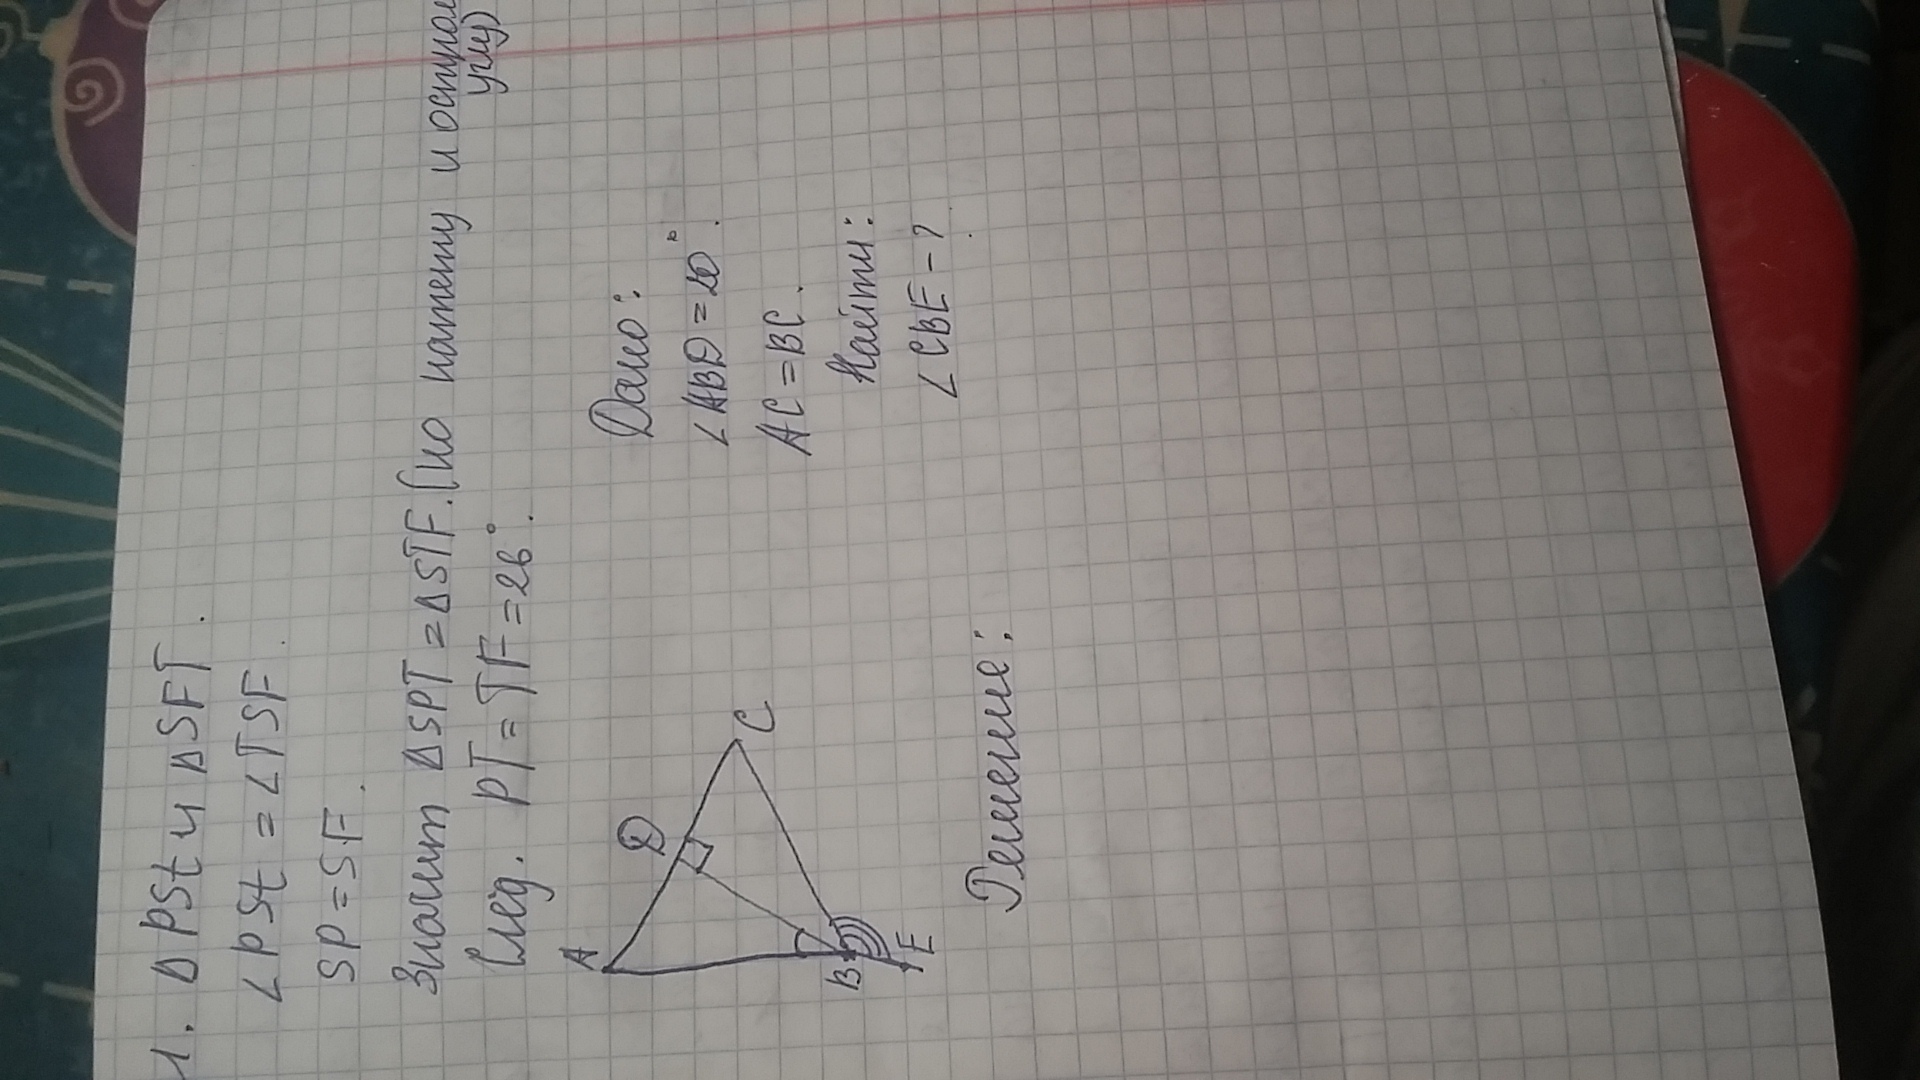 1. Δ PSt и Δ SFT.
∠PSt = ∠TSF.
SP = SF.
Значит ΔSPT = ΔSTF. (по катету и
углу)
След. PT = TF = 26°.
A
D
C
B
E
Дано:
∠ABD =
AC = BC.
Найти:
∠CBE - ?
Решение: